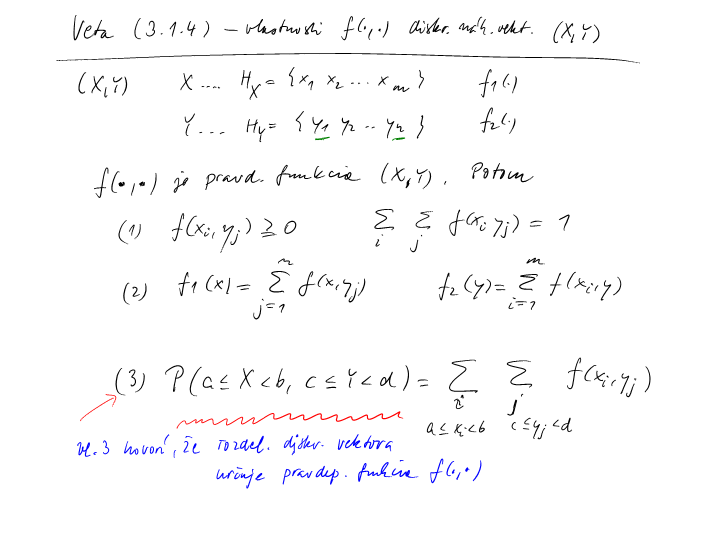 Veta (3.1.4) – vlastnosti f(•,•) diskr. náh. vekt. (X,Y)
(X,Y) X .... H_X = {x_1 x_2 ... x_m} f_1(.)
Y ... H_Y = {y_1 y_2 .. y_n} f_2(.)
f(•,•) je pravd. funkcia (X,Y). Potom
(1) f(x_i, y_j) ≥ 0 ∑_i ∑_j f(x_i y_j) = 1
(2) f_1(x) = ∑_{j=1}^n f(x,y_j) f_2(y) = ∑_{i=1}^m f(x_i,y)
(3) P(a ≤ X < b, c ≤ Y < d) = ∑_{i: a ≤ x_i < b} ∑_{j: c ≤ y_j < d} f(x_i,y_j)
vl. 3 hovorí, že rozdel. diskr. vektora
určuje pravdep. funkcia f(•,•)